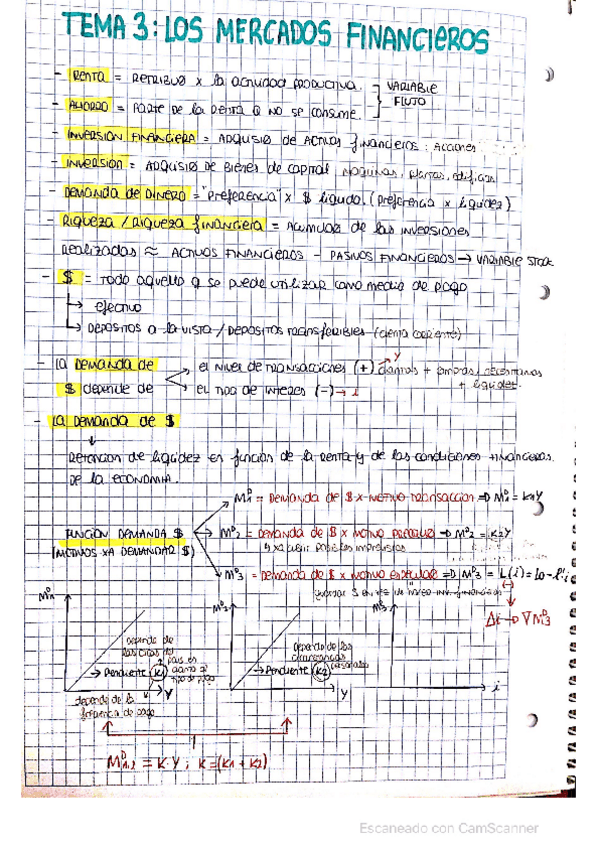 TEMA 3: LOS MERCADOS FINANCIEROS
- RENTA = RETRIBUº x la actividad PRODUCTIVA. VARIABLE
- AHORRO = PARTE DE LA RENTA Q NO SE CONSUME. FLUJO
- INVERSION FINANCIERA = ADQUISIº DE ACTIVOS financieros: Acciones
- INVERSION = ADQUISIº DE BIENES DE CAPITAL maquinas, plantas, edificios
- DEMANDA DE DINERO = "preferencia" x $ liquido (preferencia x liquidez)
- RIQUEZA / RIQUEZA financiera = Acumulaº DE LAS INVERSIONES
REALIZADAS ≈ ACTIVOS FINANCIEROS - PASIVOS FINANCIEROS → VARIABLE STOCK
- $ = TODO AQUELLO Q SE PUEDE UTILIZAR COMO MEDIO DE PAGO
↳ efectivo
↳ DEPOSITOS A LA VISTA / DEPOSITOS TRANSFERIBLES (cuenta corriente)
- LA DEMANDA DE $ depende de
el NIVEL DE TRANSACCIONES (+) → Y
+ liquidez
el TIPO DE INTERES (-) → i
- LA DEMANDA DE $
↓
RETENCION DE liquidez en función de la RENTA y de las condiciones FINANCIERAS
DE LA ECONOMIA.
FUNCION DEMANDA $
(MOTIVOS XA DEMANDAR $)
M^D_1 = DEMANDA DE $ x MOTIVO TRANSACCION => M^D_1 = K1Y
M^D_2 = DEMANDA DE $ x MOTIVO PRECAUº => M^D_2 = K2Y
↳ xa cubrir posibles imprevistos
M^D_3 = DEMANDA DE $ x MOTIVO ESPECULAº => M^D_3 = L(i) = l0 - l'i
(-)
Δi → ∇M^D_3
M^D_1
M^D_2
M^D_3
depende de
→ Pendiente (K1)
depende de la
frecuencia de pago
Y
depende de las
circunstancias
personales
→ Pendiente (K2)
Y
i
M^D_1,2 = K·Y ; K = (K1 + K2)
Escaneado con CamScanner